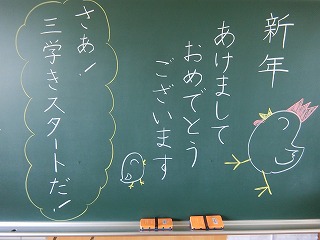 新年
あけまして
おめでとう
ございます
さあ！
三学きスタートだ！